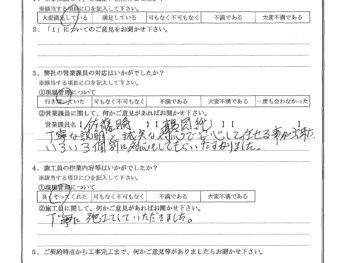 ※該当する項目に○を記入して下さい。
大変満足している 満足している 可もなく不可もなく 不満である 大変不満である
2．「1」についてのご意見をお聞かせ下さい。
3．弊社の営業課員の対応はいかがでしたか？
※該当する項目に○を記入して下さい。
①現場管理について
行き届いていた 可もなく不可もなく 不満である 大変不満である 一度も会わなかった
②営業課員に関して、何かご意見があればお聞かせ下さい。
営業課員名【
丁寧な説明と誠実な対応で安心して任せる事が出来、
いろいろ個別に対応もしてもらいたすかりました。
4．施工員の作業内容等はいかがでしたか？
※該当する項目に○を記入して下さい。
①現場管理について
良くやってくれた 可もなく不可もなく 不満である 大変不満である
②施工員に関して、何かご意見があればお聞かせ下さい。
丁寧に施工していただきました。
5．ご契約時点から工事完工まで、何かご意見等がありましたらお聞かせ下さい。